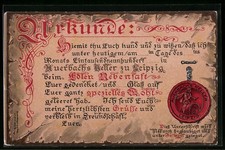 Urkunde:
Hiemit thu Euch kund und zu wissen, daß ich
unter heutigem, am Tage des
Monats Eintausendneunhundert
in Auerbachs Keller zu Leipzig
beim Edlen Rebensaft
Euer gedenket und Glas auf
Euer ganz spezielles Wohl
geleeret hab. Ich send Euch
meine herzlichsten Grüße und
verbleib in Freundschaft
Euer